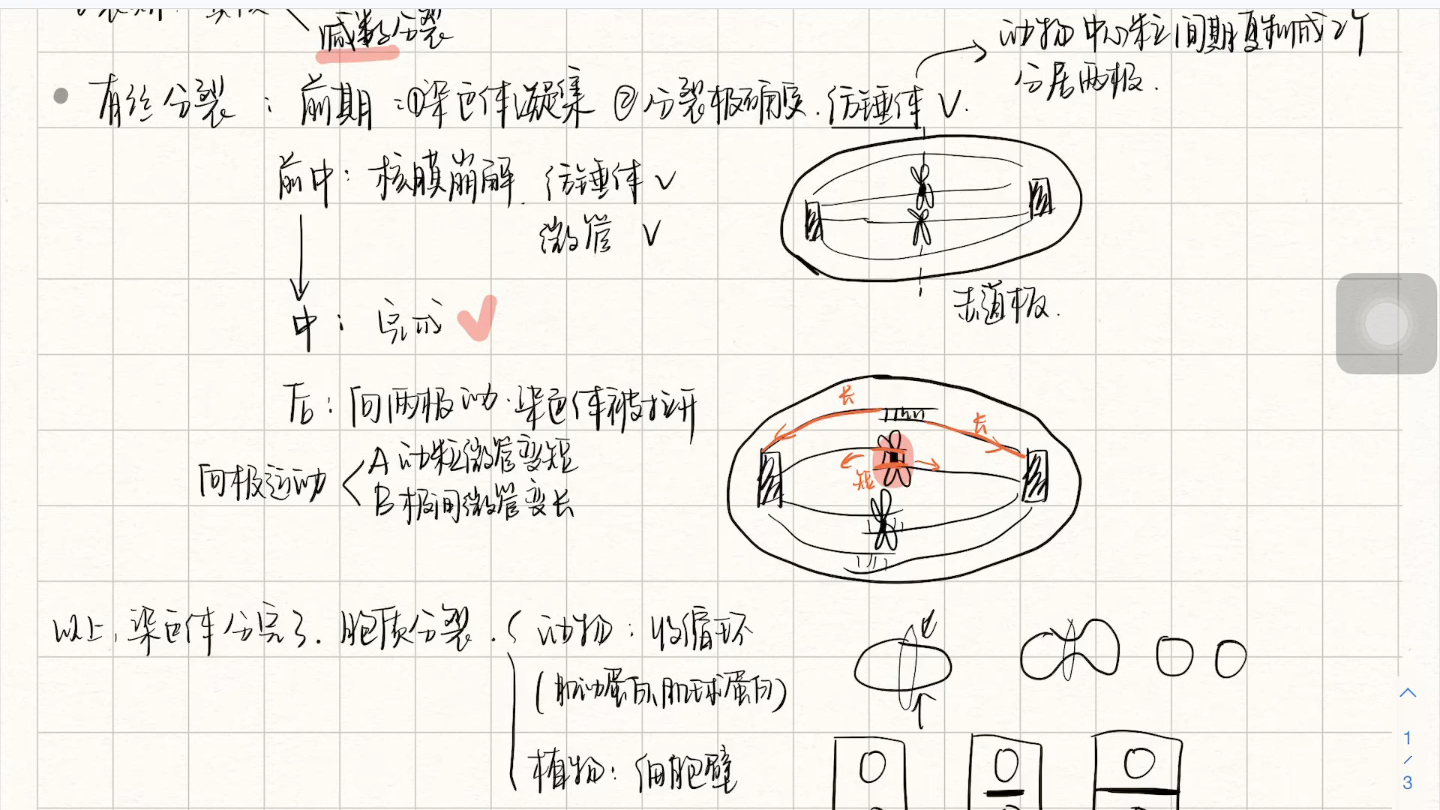 减数分裂
动物中心粒间期复制成2个
分居两极.
有丝分裂：前期：①染色体凝集 ②分裂极确定.纺锤体√.
前中：核膜崩解.纺锤体√
微管 √
赤道板.
中：完成
后：向两极动.染色体被拉开
长
长
短
向极运动
A 动粒微管变短
B 极间微管变长
以上,染色体分完了.胞质分裂.
动物：收缩环
(肌动蛋白,肌球蛋白)
植物：细胞壁
1
/
3